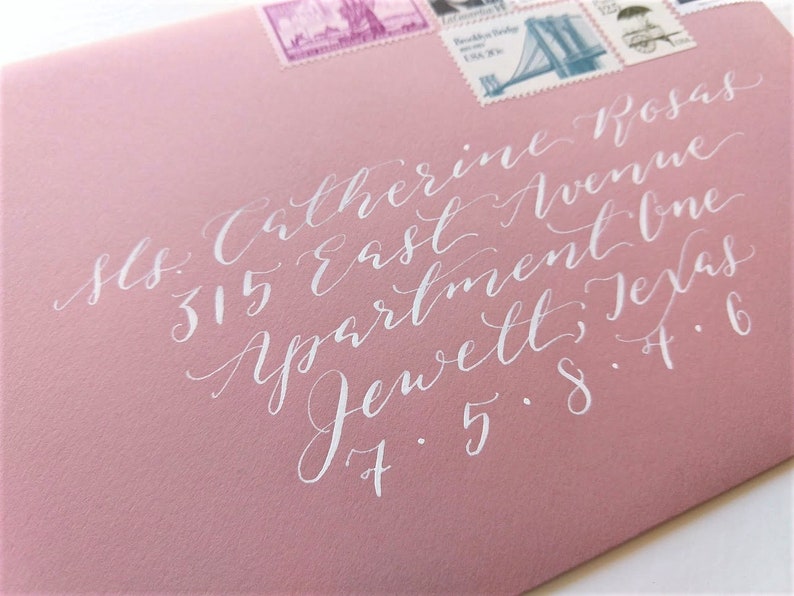 LaGuardia 14
Brooklyn Bridge
USA 20c
USA
Ms. Catherine Rosas
315 East Avenue
Apartment One
Jewett, Texas
7 · 5 · 8 · 4 · 6